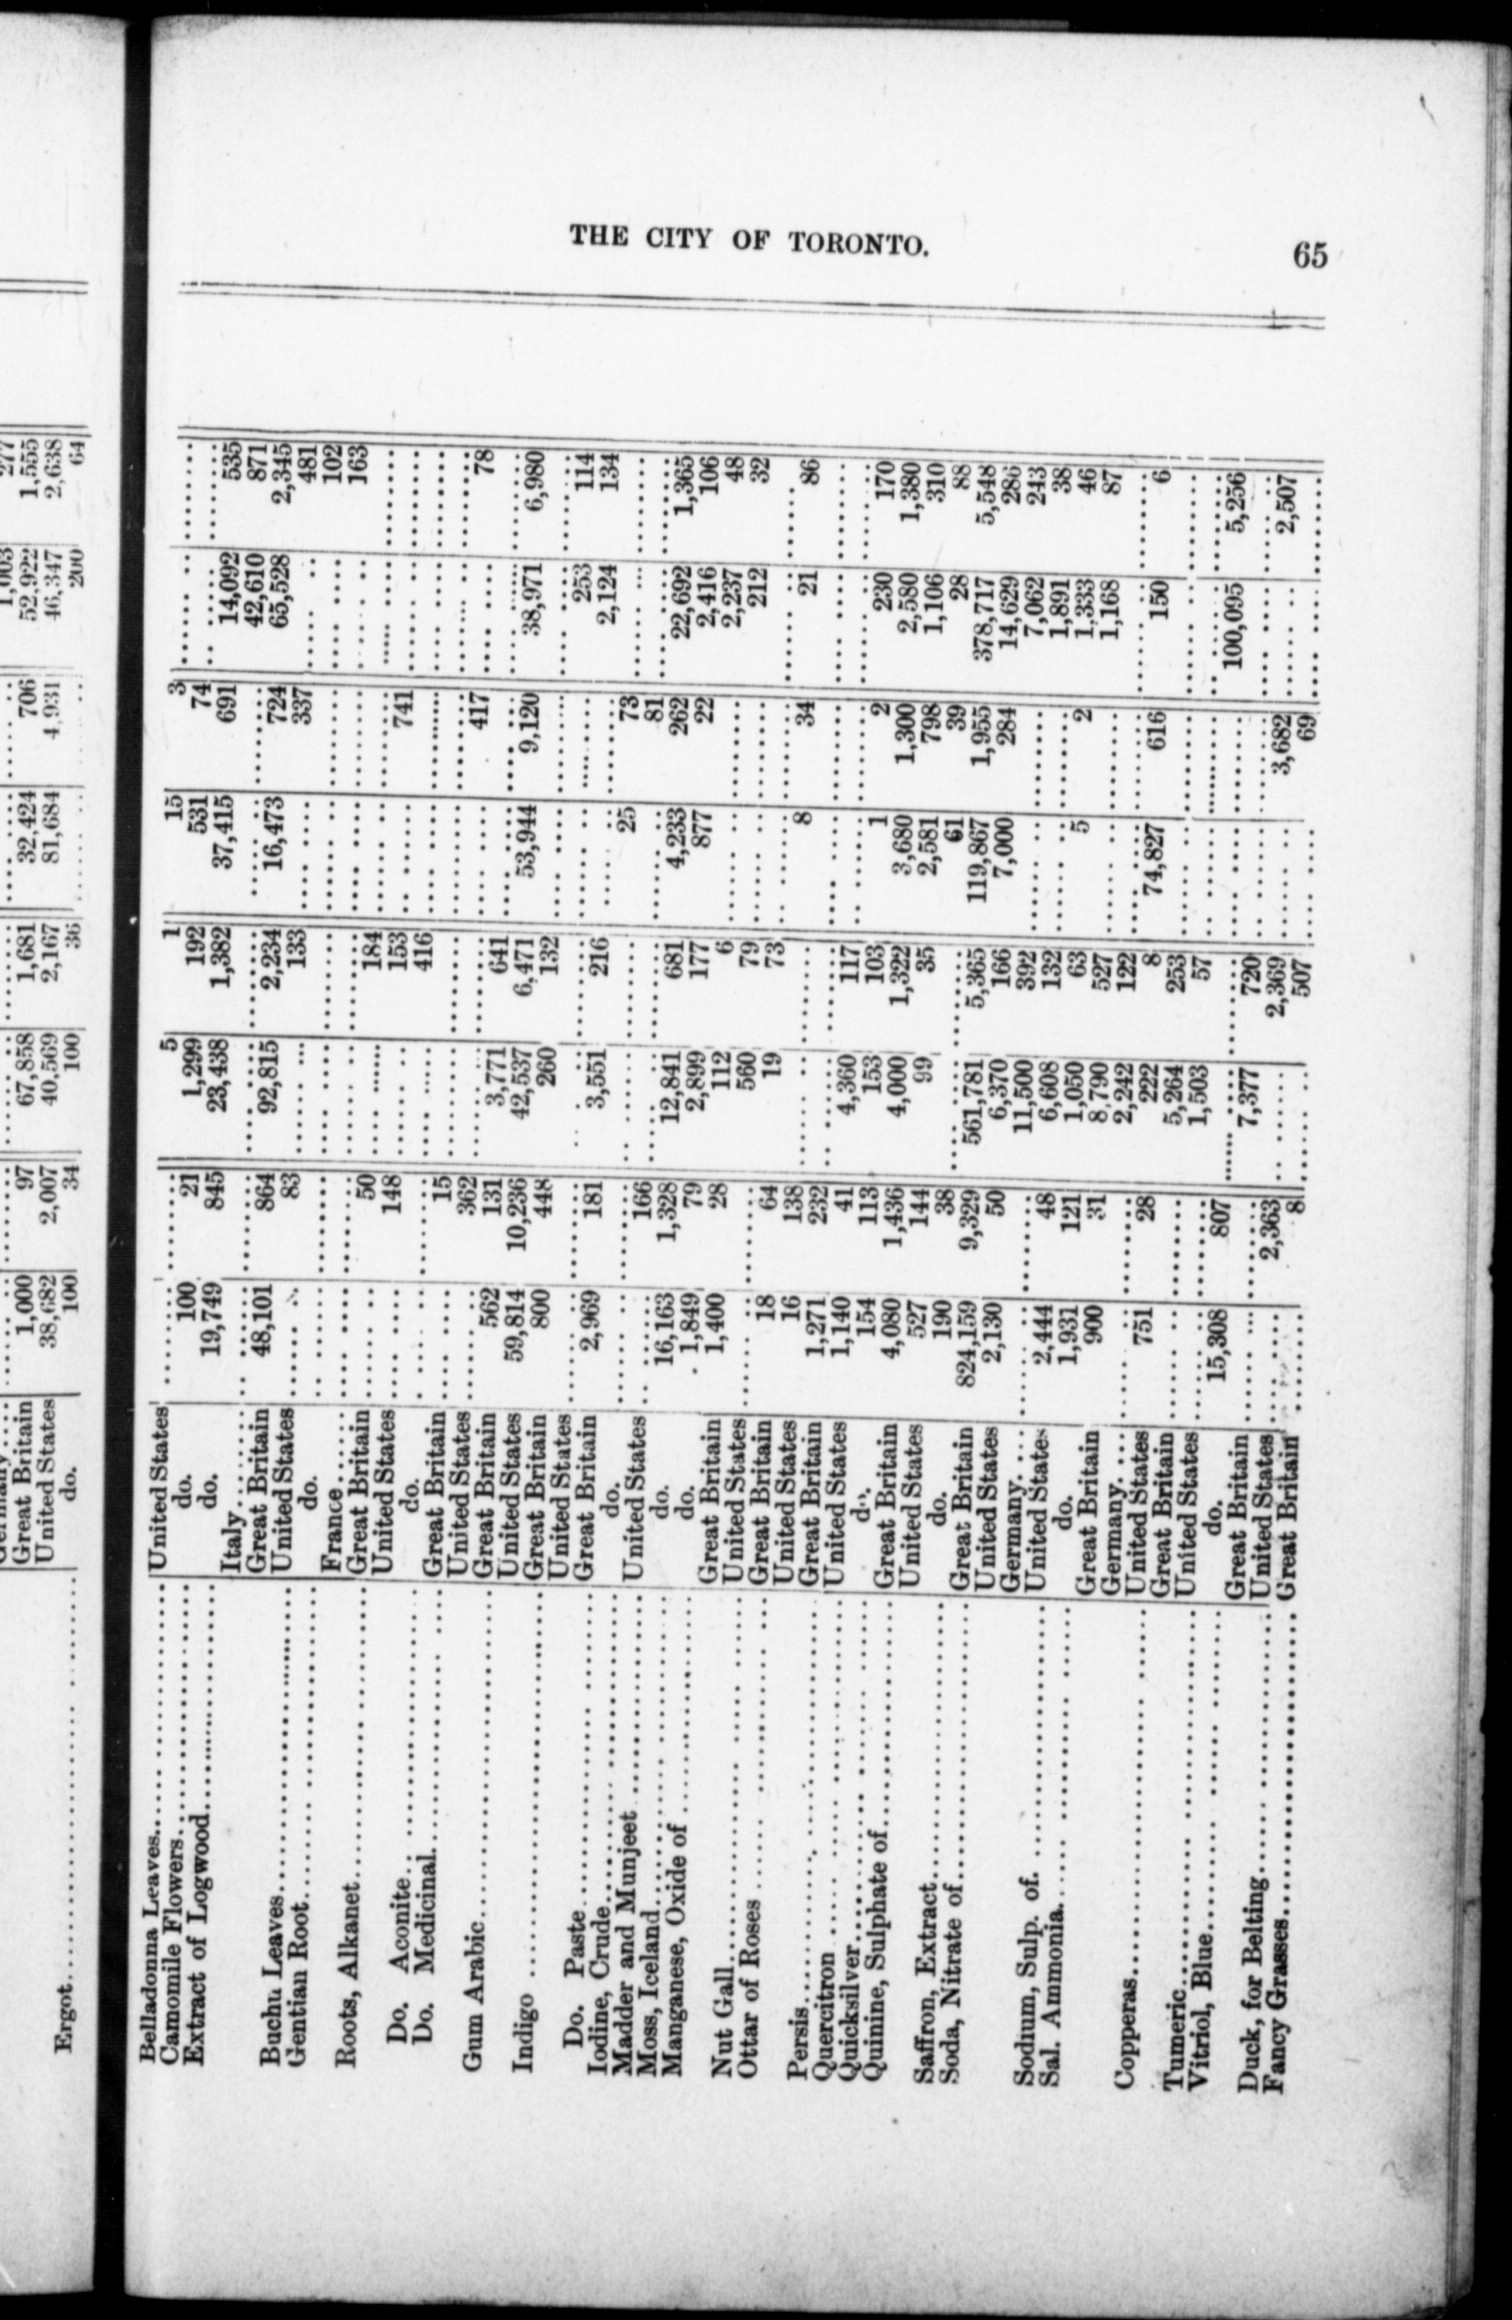 Great Britain 1,000 97 67,858 1,681 32,424 706 52,922 1,555
United States 38,682 2,007 40,569 2,167 81,684 4,931 46,347 2,638
Ergot do. 100 34 100 36 200 64
THE CITY OF TORONTO. 65
Belladonna Leaves United States 5 1 15 3
Camomile Flowers do. 100 21 1,299 192 531 74
Extract of Logwood do. 19,749 845 23,438 1,382 37,415 691 14,092 535
Italy 42,610 871
Great Britain 48,101 864 92,815 2,234 16,473 724 65,528 2,345
Buchu Leaves United States 83 133 337 481
Gentian Root do. 102
France 163
Roots, Alkanet Great Britain 50 184
United States 148 153 741
Do. Aconite do. 416
Do. Medicinal Great Britain 15
United States 362 417 78
Gum Arabic Great Britain 562 131 3,771 641
United States 59,814 10,236 42,537 6,471 53,944 9,120 38,971 6,980
Indigo Great Britain 800 448 260 132
United States 253 114
Do. Paste Great Britain 2,969 181 3,551 216 2,124 134
Iodine, Crude do. 25 73
Madder and Munjeet United States 166 81
Moss, Iceland do. 16,163 1,328 12,841 681 4,233 262 22,692 1,365
Manganese, Oxide of do. 1,849 79 2,899 177 877 22 2,416 106
Great Britain 1,400 28 112 6 2,237 48
Nut Gall United States 560 79 212 32
Ottar of Roses Great Britain 18 64 19 73
United States 16 138 8 34 21 86
Persis Great Britain 1,271 232
Quercitron United States 1,140 41 4,360 117
Quicksilver do. 154 113 153 103 1 2 230 170
Quinine, Sulphate of Great Britain 4,080 1,436 4,000 1,322 3,680 1,300 2,580 1,380
United States 527 144 99 35 2,581 798 1,106 310
Saffron, Extract do. 190 38 61 39 28 88
Soda, Nitrate of Great Britain 824,159 9,329 561,781 5,365 119,867 1,955 378,717 5,548
United States 2,130 50 6,370 166 7,000 284 14,629 286
Germany 11,500 392 7,062 243
Sodium, Sulp. of. United States 2,444 48 6,608 132 1,891 38
Sal. Ammonia do. 1,931 121 1,050 63 5 2 1,333 46
Great Britain 900 31 8,790 527 1,168 87
Germany 2,242 122
Copperas United States 751 28 222 8 74,827 616 150 6
Great Britain 5,264 253
Tumeric United States 1,503 57
Vitriol, Blue do. 15,308 807 100,095 5,256
Great Britain 7,377 720
Duck, for Belting United States 2,363 2,369 3,682 2,507
Fancy Grasses Great Britain 8 507 69